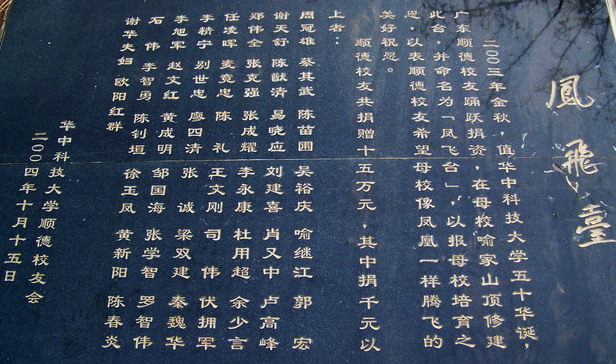 鳳飛臺
二〇〇三年金秋，值华中科技大学五十华诞，
广东顺德校友踊跃捐资，在母校喻家山顶修建
此台，并命名为「凤飞台」，以报母校培育之
恩，以表顺德校友希望母校像凤凰一样腾飞的
美好祝愿。
顺德校友共捐赠十五万元，其中捐千元以
上者：
周冠雄 蔡其武 陈苗圃 吴裕庆 喻继江 郭宏
谢天舒 陈猷清 易晓应 刘建喜 肖又中 卢高峰
郑伟全 张克强 张成耀 李永康 杜用超 余少言
任凌晖 麦竟忠 陈礼 王文刚 司伟 伏拥军
李精宁 别世忠 廖四清 张诚 梁双建 秦魏华
李旭军 赵文红 黄成明 邹国海 张学智 罗智伟
石伟 李智勇 陈钊垣 徐玉凤 黄新阳 陈春炎
谢华夫妇 欧阳红群
华中科技大学顺德校友会
二〇〇四年十月十五日